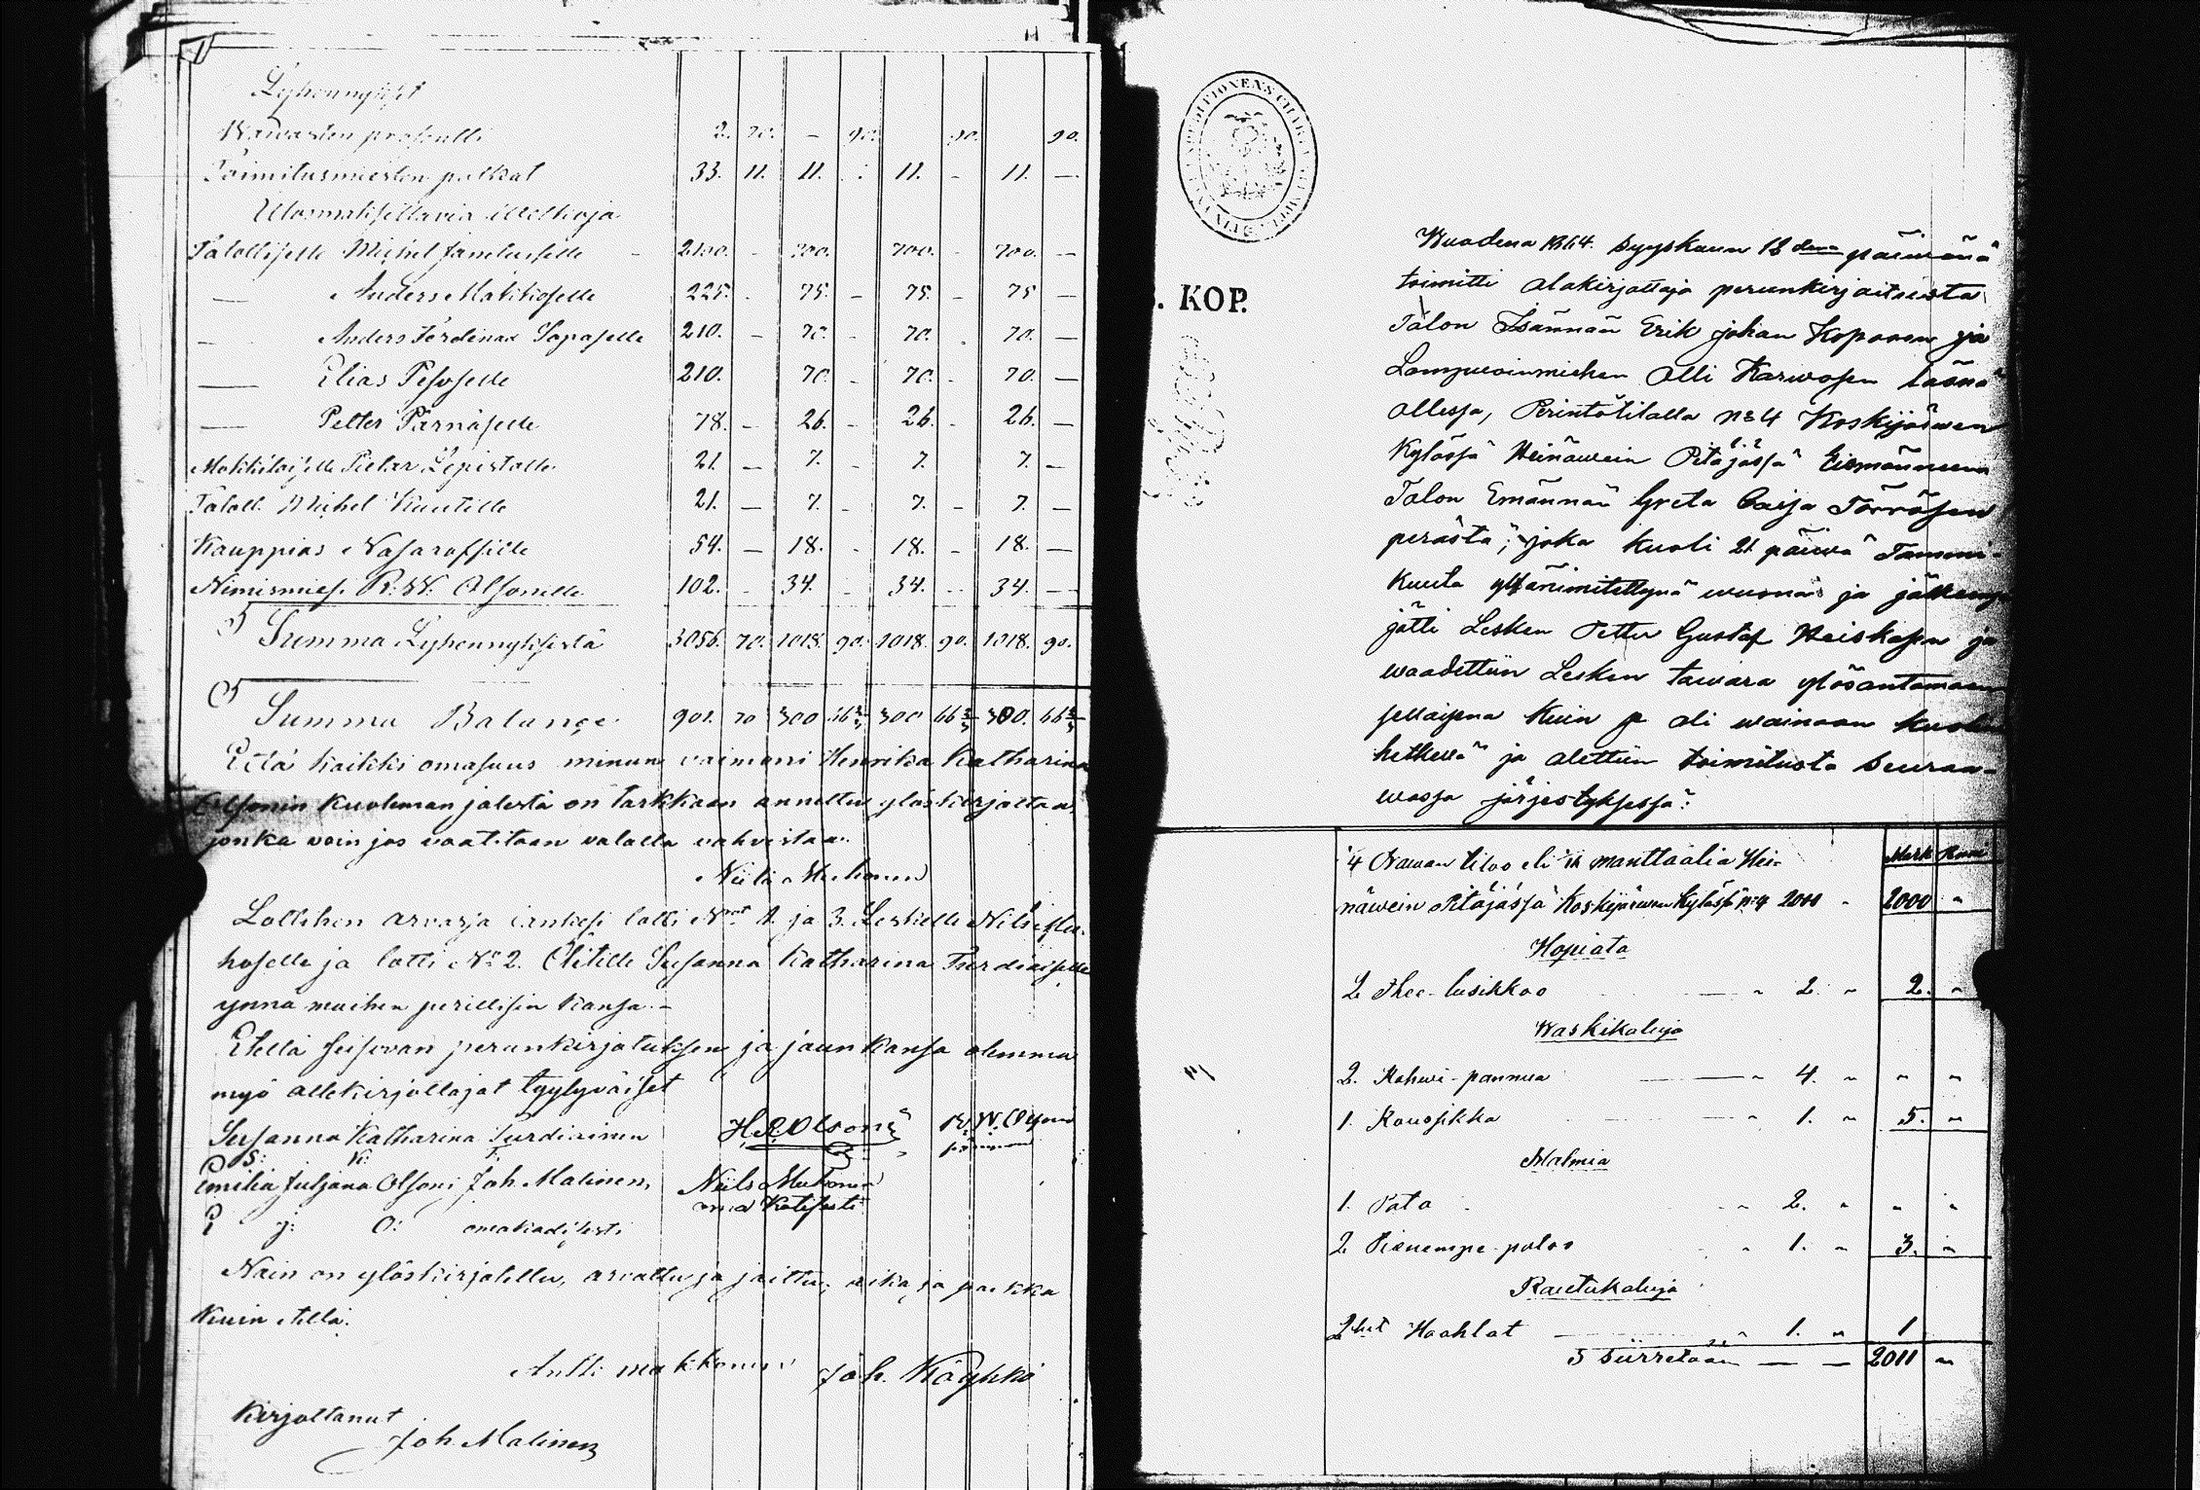 Lyhennykset
Waivasten prosentti 2. 70. – 90. 90. 90.
Toimitusmiesten palkat 33. 11. 11. 11. – 11. —
Ulosmaksettavia Welkoja
Talolliselle Michel 2100. - 700. 700. - 700. —
— Anders Makkoselle 225. - 75. – 75. – 75 —
— Anders Ferdinand Saposelle 210. – 70. - 70. 70. —
— Elias Pesoselle 210. 70. - 70. - 70. —
— Petter Pärnäselle 78. – 26. - 26. - 26. —
Mökkiläiselle Pietar Lepistölle 21. — 7. - 7. 7. —
Taloll. Michel Kuutille 21. — 7. - 7. – 7. —
Kauppias Nasaroffille 54. — 18. - 18. – 18. —
Nimismies. R. W. Olsonille 102. - 34. - 34. - 34. —
S Summa Lyhennyksistä 3056. 70. 1018. 90. 1018. 90. 1018. 90.
S Summa Balance 901. 70 300 300 66⅔ 300. 66⅔
Että kaikki omasuus minun vaimoni Henrika Katharina
Olsonin kuoleman jälestä on tarkkaan annettu ylöskirjattaa,
jonka voin jos vaatitaan valalla vahvistaa.
Niilo Muhonen
Lottihen arvassa lankesi lotti N 1. ja 3. Leskelle Nils Mu-
hoselle ja lotti N:o 2. Äitille Susanna Katharina Turdiaiselle
ynnä muihen perillisin kansa.-
Etellä seisovan perunkirjotuksen ja jaun kansa olemma
myö allekirjottajat tyytyväiset
Susanna Katharina Turdiainen H. R. Olsoni R. W. Olsoni
S: K: T:
Emilia Juljana Olsoni Joh. Malinen, Nils Muhonen
E j: O: omakädisesti
Näin on ylöskirjotettu, arvattu ja jaittu, aika ja paikka
kuin etellä.
Antti makkonen Joh. Käyhkö
Kirjottanut
Joh Malinen
. KOP.
Wuodena 1864. Syyskuun 18 dena päiwänä
toimitti alakirjottaja perunkirjoituista
Talon Isännän Erik johan Koposen ja
Lampuoinmiehen Olli Karwosen läsnä
ollessa, Perintötilalla No 4 Koskijärwen
Kylässä Heinäwein Pitäjässä Eismänneena
Talon Emännän Greta Caisa Törrösen
perästä, joka kuoli 21 päiwä Tammi-
kuuta ylläänimitettynä wuonna ja jälkeensä
jätti Lesken Petter Gustaf Heiskasen ja
waadettiin Lesken tawara ylösantamaan
sellaisena kuin se oli wainaan kuolin
hetkellä ja alettiin toimitusta seuraa-
wassa järjestyksessä:
Mark Penni
4 Nawan tiloo eli manttaalia Hei-
näwein Pitäjässä Koskijärwen Kylässä No 4 2000 2000 "
Hopiata
2 Thee-lusikkoo — " 2. " 2. "
Waskikaluja
2. Kahwi-pannua — " 4. " " "
1. Kousikka " 1. " 5. "
Malmia
1. Pata " 2. " " "
2 Pienempe patoo " 1. " 3. "
Rautakaluja
2 Haahlat — " 1. " 1
S Siirretään — — 2011 "